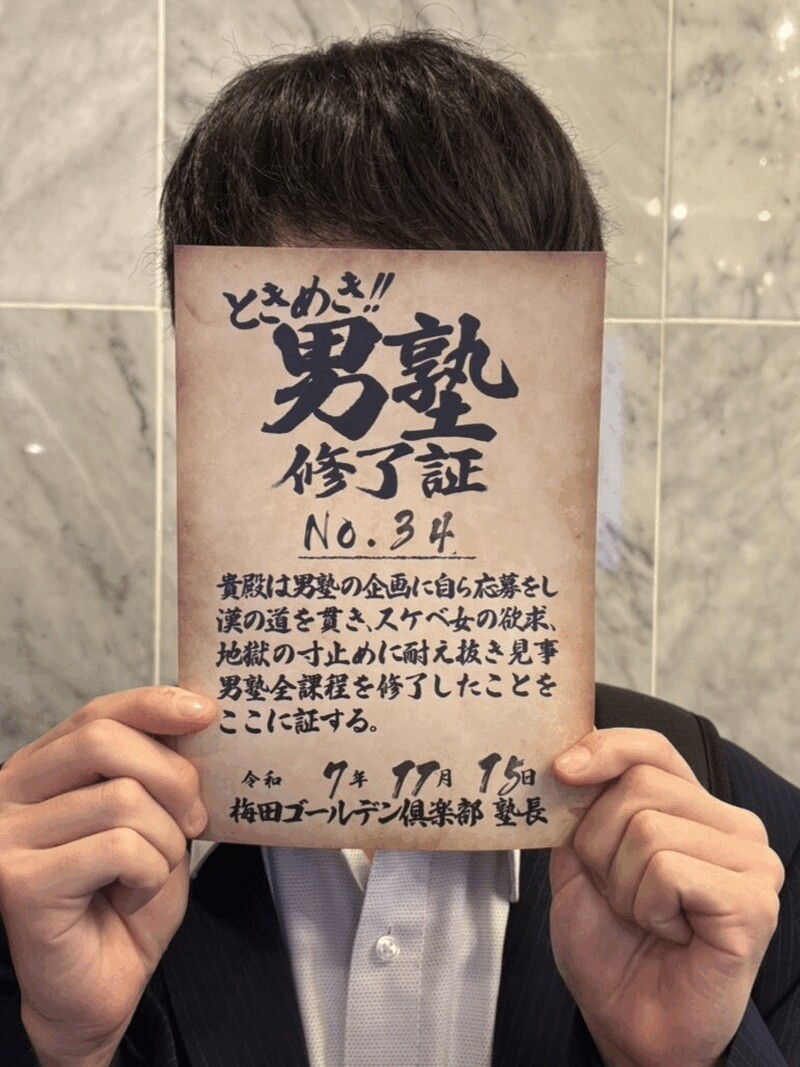 ときめき!!
男塾
修了証
No.34
貴殿は男塾の企画に自ら応募をし
漢の道を貫き、スケベ女の欲求、
地獄の寸止めに耐え抜き見事
男塾全課程を修了したことを
ここに証する。
令和 7年 11月 15日
梅田ゴールデン倶楽部 塾長